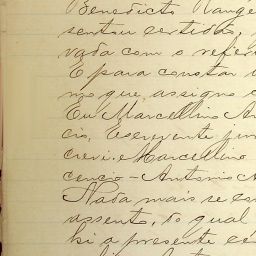 Benedicto Range
sentou certidão,
vada com o refer
E para constar
mo que assigno
Eu Marcellino An
cio, Escrevente jur
crevi. Marcellino
cencio - Antonio A
Nada mais se con
assento, do qual
hi a presente cé